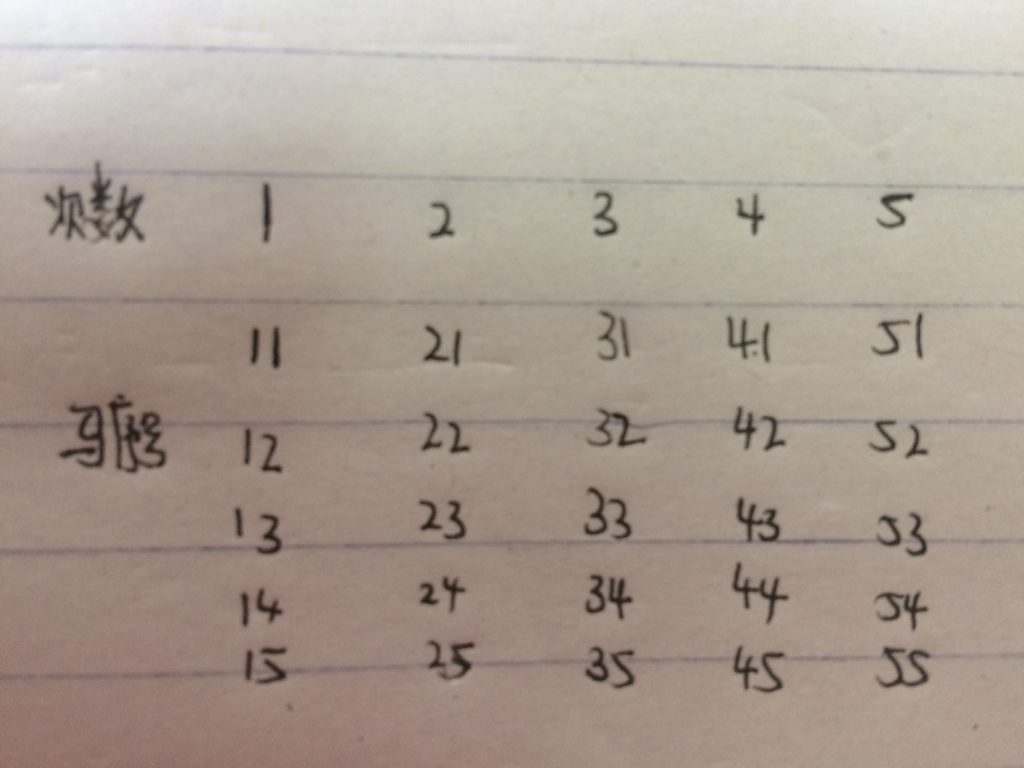 次数 1 2 3 4 5
11 21 31 41 51
12 22 32 42 52
13 23 33 43 53
14 24 34 44 54
15 25 35 45 55